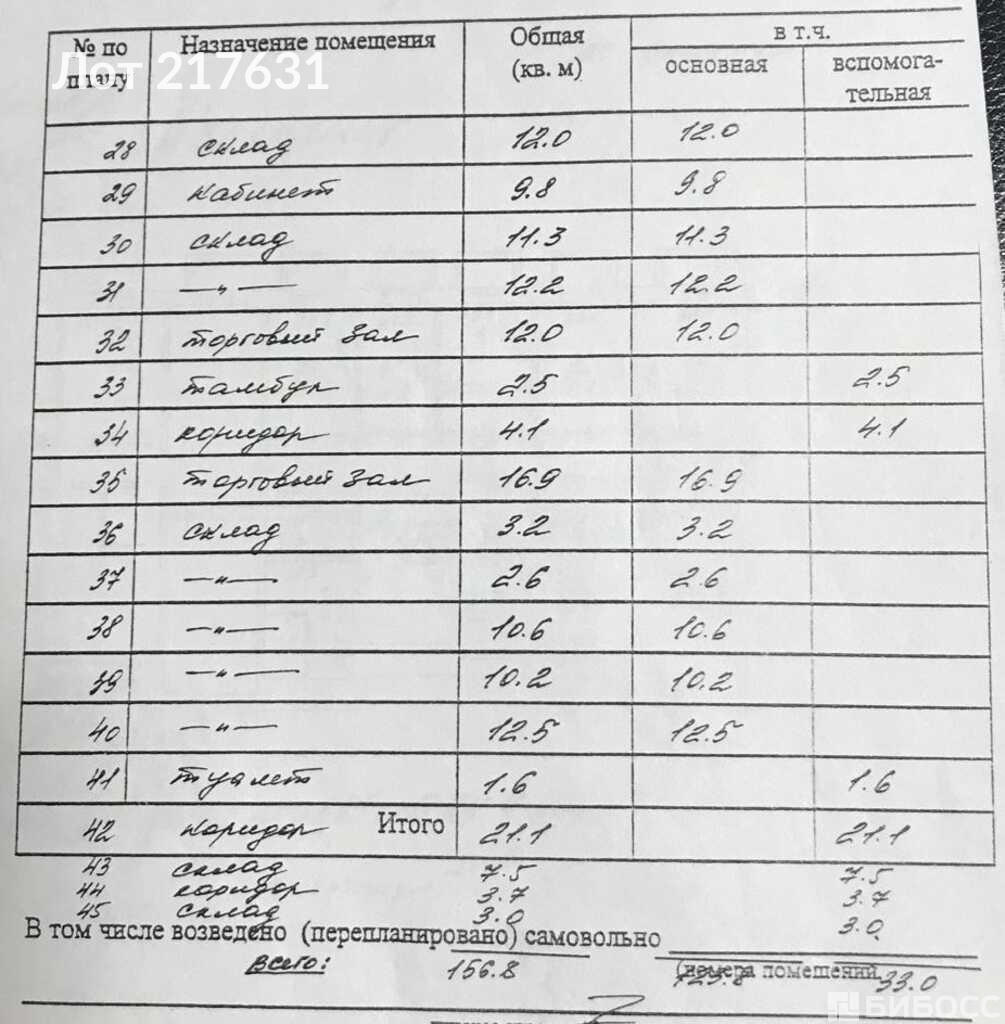 № по плану Назначение помещения Общая (кв. м) в т.ч. основная вспомога-тельная
Лот 217631
28 склад 12.0 12.0
29 кабинет 9.8 9.8
30 склад 11.3 11.3
31 —„— 12.2 12.2
32 торговый зал 12.0 12.0
33 тамбур 2.5 2.5
34 коридор 4.1 4.1
35 торговый зал 16.9 16.9
36 склад 3.2 3.2
37 —„— 2.6 2.6
38 —„— 10.6 10.6
39 —„— 10.2 10.2
40 —„— 12.5 12.5
41 туалет 1.6 1.6
42 коридор Итого 21.1 21.1
43 склад 7.5 7.5
44 коридор 3.7 3.7
45 склад 3.0 3.0
В том числе возведено (перепланировано) самовольно
Всего: 156.8 (номера помещений, 123.8 33.0
БИБОСС